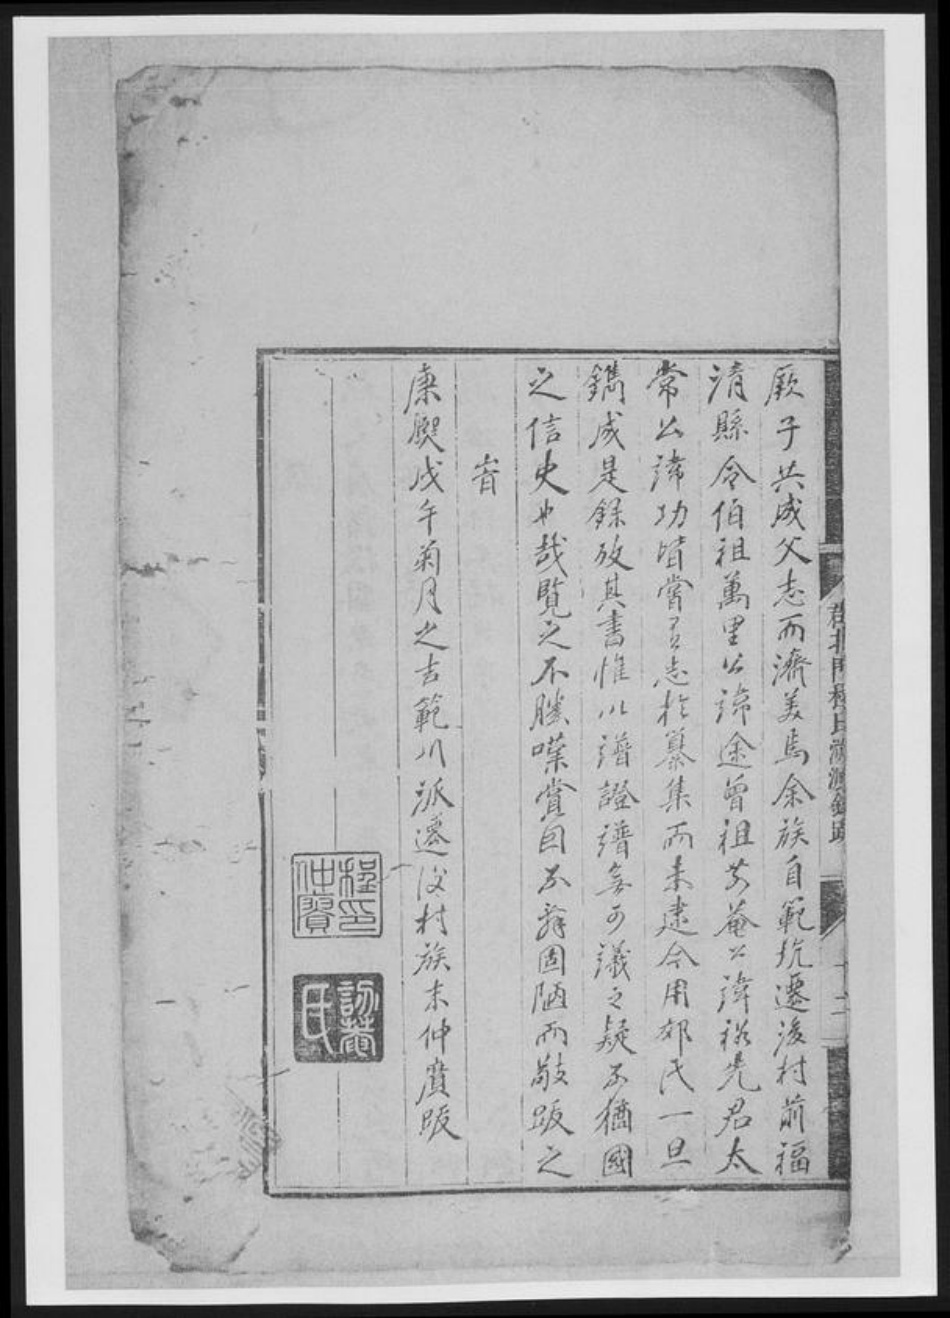 厥子共成父志而濟美焉余族自範坑遷後村前福
清縣令伯祖萬里公諱途曾祖芳菴公諱裕先君太
常公諱功皆嘗有志於纂集而未逮今用郊氏一旦
鐫成是錄攷其書惟以譜證譜無可議之疑不猶國
之信史也哉覽之不勝嘆賞因不辭固陋而敬跋之
旹
康熙戊午菊月之吉範川派遷後村族末仲賓跋
程印仲賓
詒菴氏
北門程氏
十二